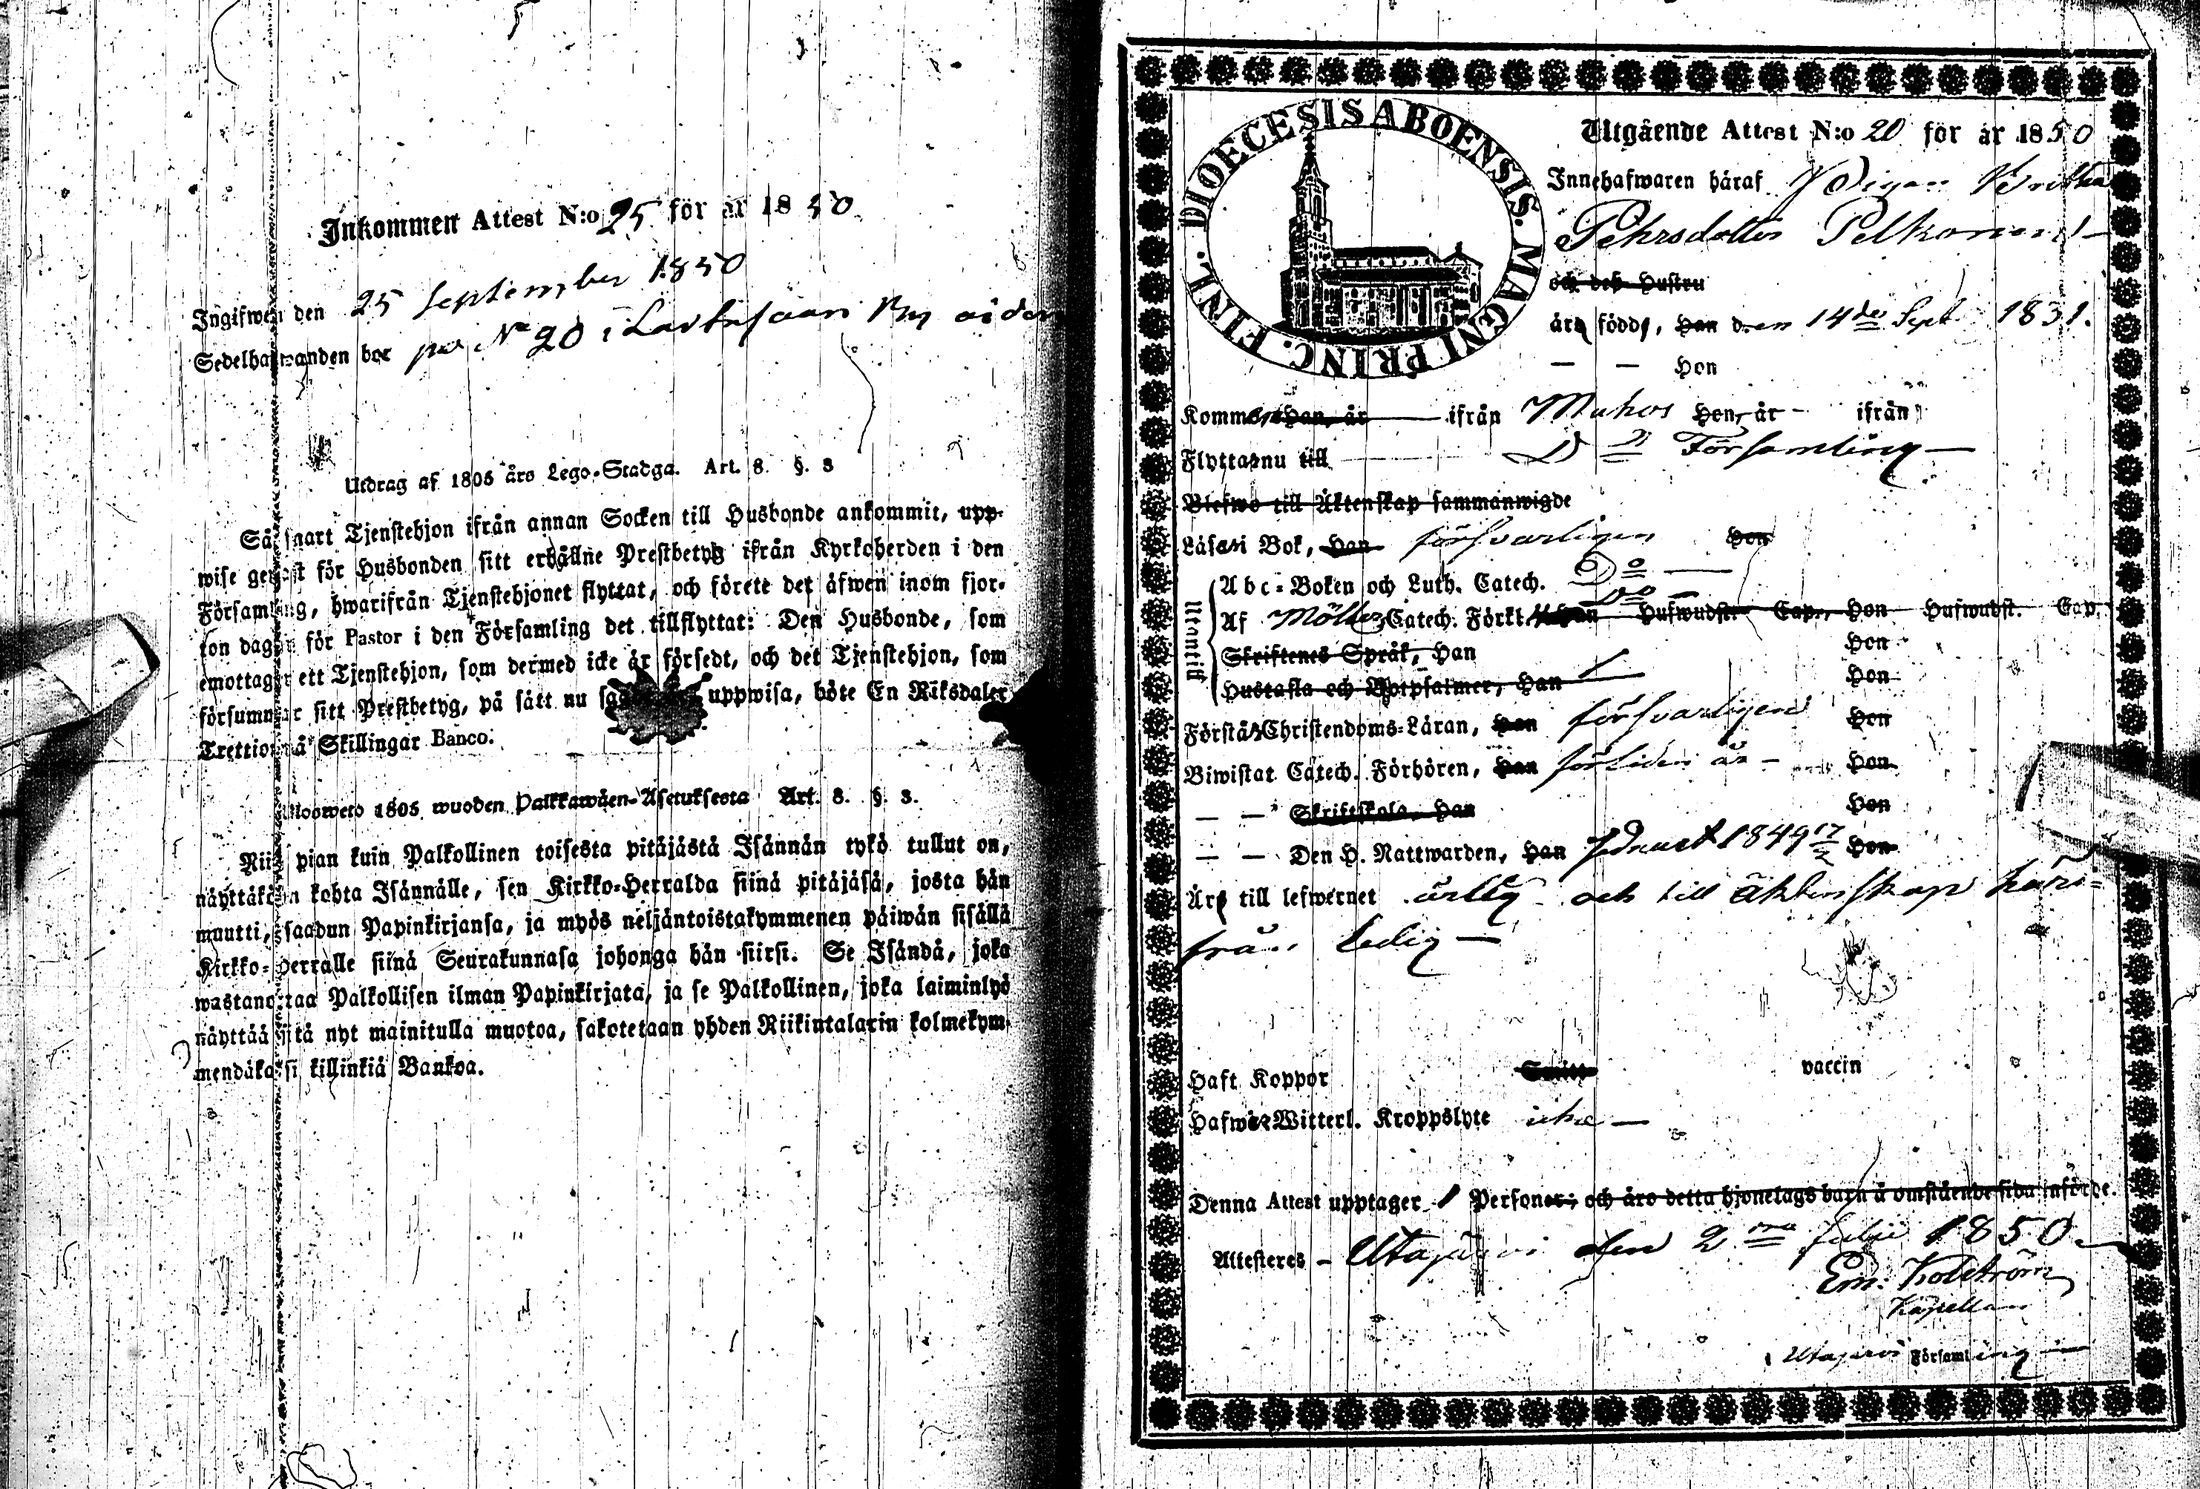 Inkommen Attest N:o 25 för år 1850
Ingifwen den 25 September 1850
Sedelhafwanden bor på N:o 20 i By
Utdrag af 1805 års Lego-Stadga. Art. 8. §. 3
Så snart Tjenstehjon ifrån annan Socken till Husbonde ankommit, upp-
wise genast för Husbonden sitt erhållne Prestbetyg ifrån Kyrkoherden i den
Församling, hwarifrån Tjenstehjonet flyttat, och förete det äfwen inom fjor-
ton dagar för Pastor i den Församling det tillflyttat: Den Husbonde, som
emottager ett Tjenstehjon, som dermed icke är försedt, och det Tjenstehjon, som
försummar sitt Prestbetyg, på sätt nu uppwisa, böte En Riksdaler
Trettio Skillingar Banco.
Uloosweto 1805 wuoden Palkkawäen-Asetuksesta Art. 8. §. 3.
Niin pian kuin Palkollinen toisesta pitäjästä Isännän tykö tullut on,
näyttäkään kohta Isännälle, sen Kirkko-Herralda siinä pitäjäsä, josta hän
muutti, saadun Papinkirjansa, ja myös neljäntoistakymmenen päiwän sisällä
Kirkko-herralle siinä Seurakunnasa johonga hän siirsi. Se Isändä, joka
wastanottaa Palkollisen ilman Papinkirjata, ja se Palkollinen, joka laiminlyö
näyttää sitä nyt mainitulla muotoa, sakotetaan yhden Riikintalarin kolmekym-
mendäkaksi killinkiä Bankoa.
DIOECESIS ABOENSIS. MAGNI PRINC. FINL.
Utgående Attest N:o 20 för år 1850
Innehafwaren häraf Pigan Britha
Pehrsdotter Pelkonen
och deß Hustru
äro födde, Han den 14de Sept 1831.
— — Hon
Kommen Han, år ifrån Muhos Hon, år - ifrån
Flytta nu till D:o Församling
Blefwo till Äktenskap sammanwigde
Läsa i Bok, Han försvarligen Hon
Abc-Boken och Luth. Catech. Do
Utantill
Af Möllers Catech. Förkl. Han Hufwudst. Cap., Hon Hufwudst. Cap.
Skriftenes Språk, Han Hon
Hustafla och Botpsalmer, Han Hon
Förstå Christendoms-Läran, Han försvarligen Hon
Biwistat Catech. Förhören, Han förliden år - Hon
— — Skriftskola, Han Hon
— — Den H. Nattwarden, Han sednast 1849 17/2 Hon
Äro till lefwernet ärlig och till äktenskap häri-
från ledig
Haft Koppor Smitt vaccin
Hafwa Witterl. Kroppslyte icke
Denna Attest upptager 1 Personer; och äro detta hjonelags barn å omstående sida införde.
Attesteres Utajärvi den 2dra Julii 1850
Em. Kolström
Kapellan
Utajärvi Församling